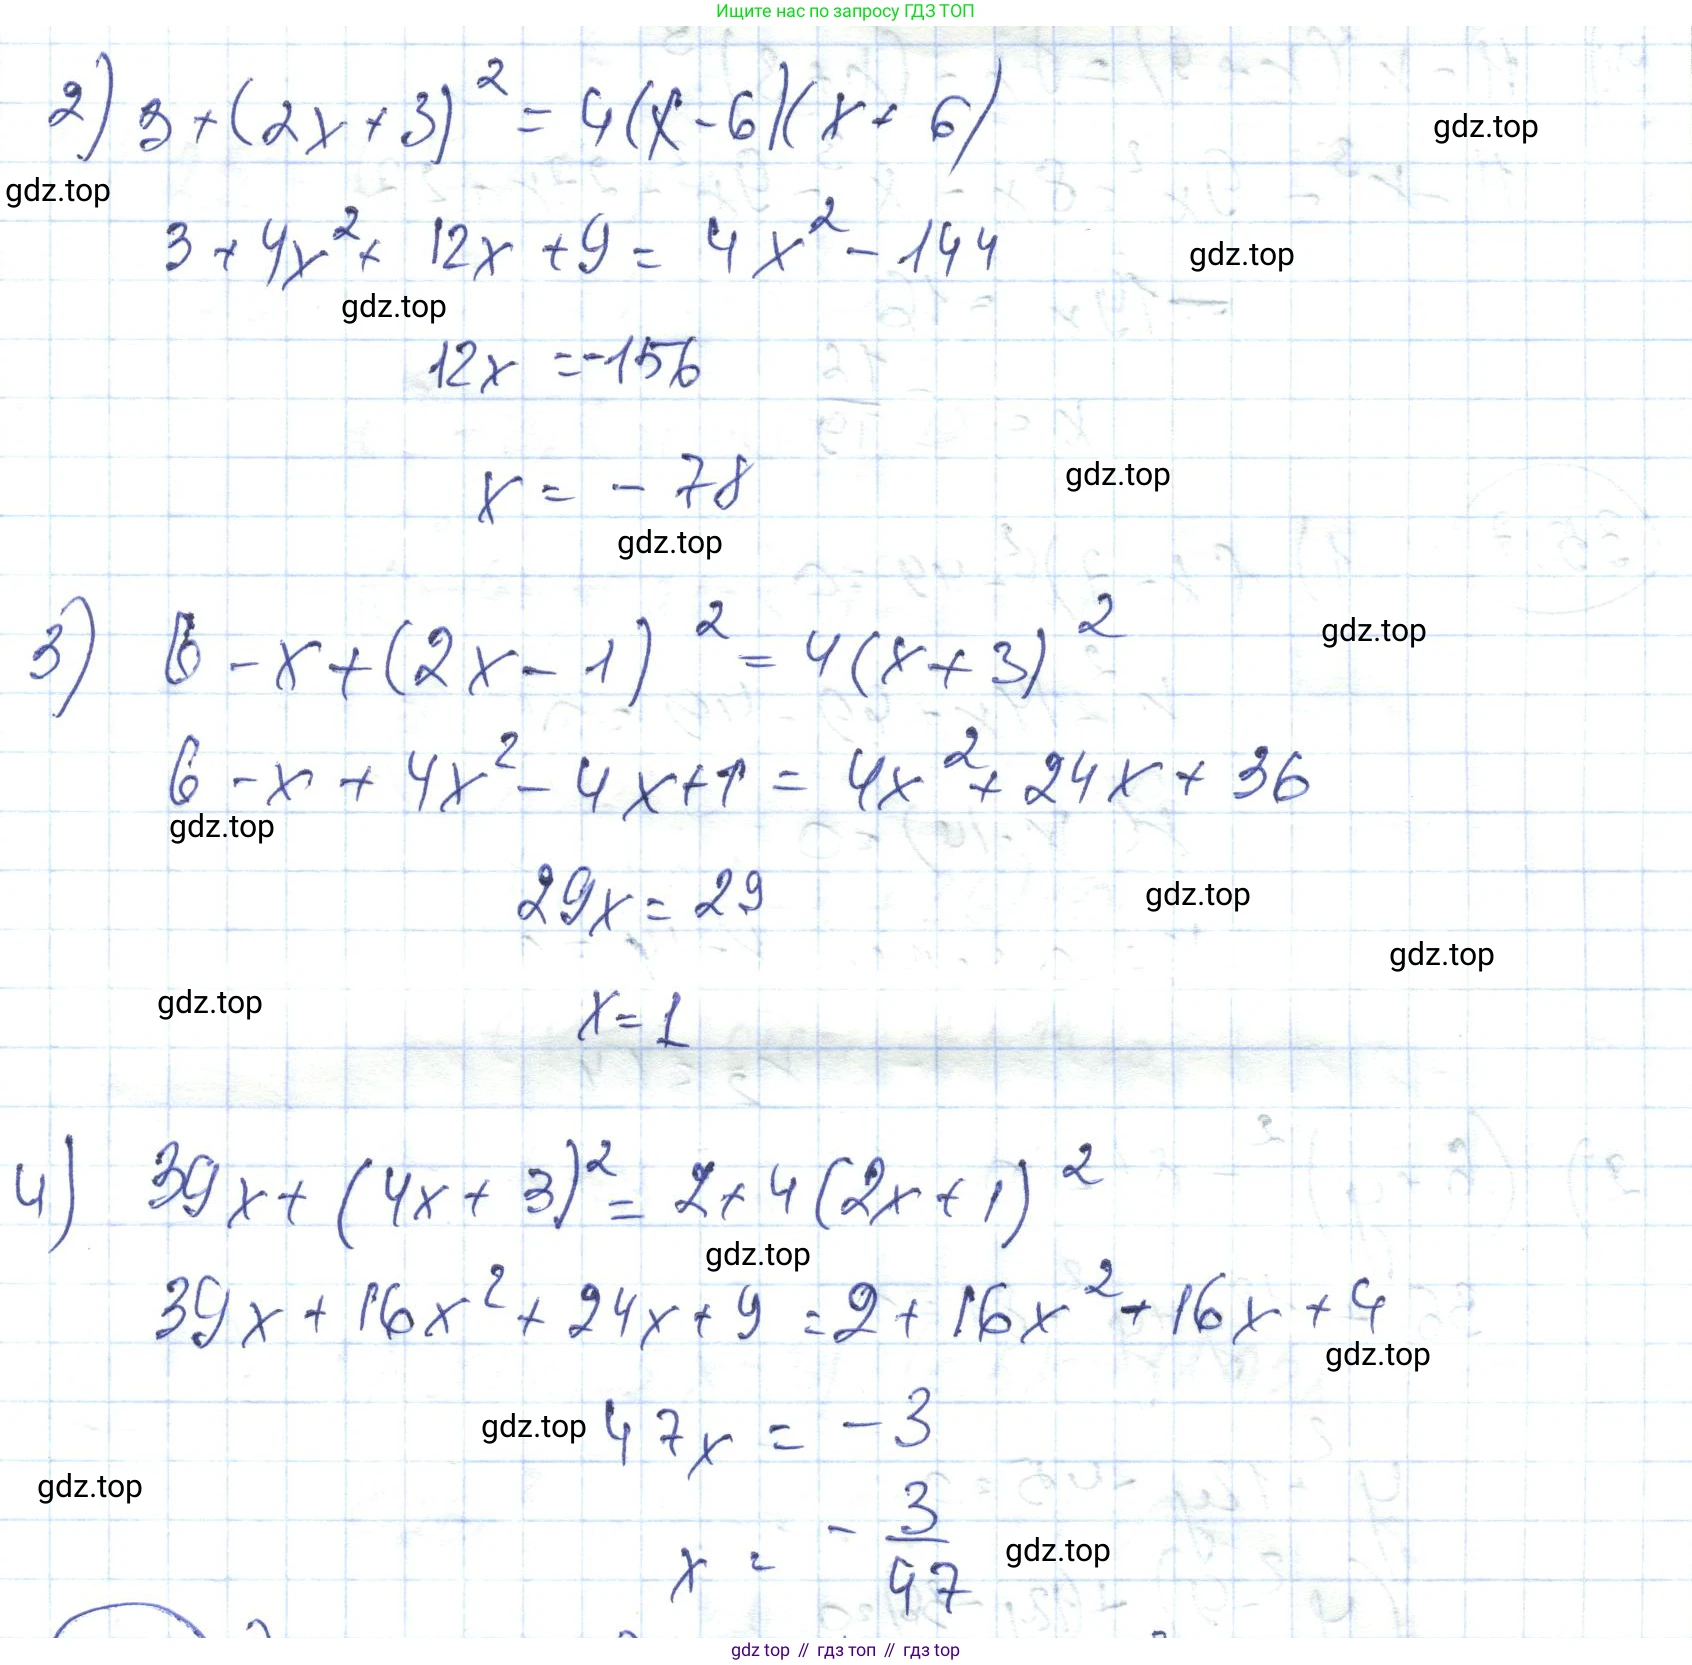 Ищите нас по запросу ГДЗ ТОП
2) 3 + (2x + 3)² = 4(x - 6)(x + 6)
gdz.top
gdz.top
3 + 4x² + 12x + 9 = 4x² - 144
gdz.top
gdz.top
12x = -156
x = - 78
gdz.top
gdz.top
3) 6 - x + (2x - 1)² = 4(x + 3)²
gdz.top
6 - x + 4x² - 4x + 1 = 4x² + 24x + 36
gdz.top
29x = 29
gdz.top
gdz.top
gdz.top
x = 1
4) 39x + (4x + 3)² = 2 + 4(2x + 1)²
gdz.top
39x + 16x² + 24x + 9 = 2 + 16x² + 16x + 4
gdz.top
gdz.top
47x = - 3
gdz.top
x = - 3/47
gdz.top
gdz top // гдз топ // гдз top